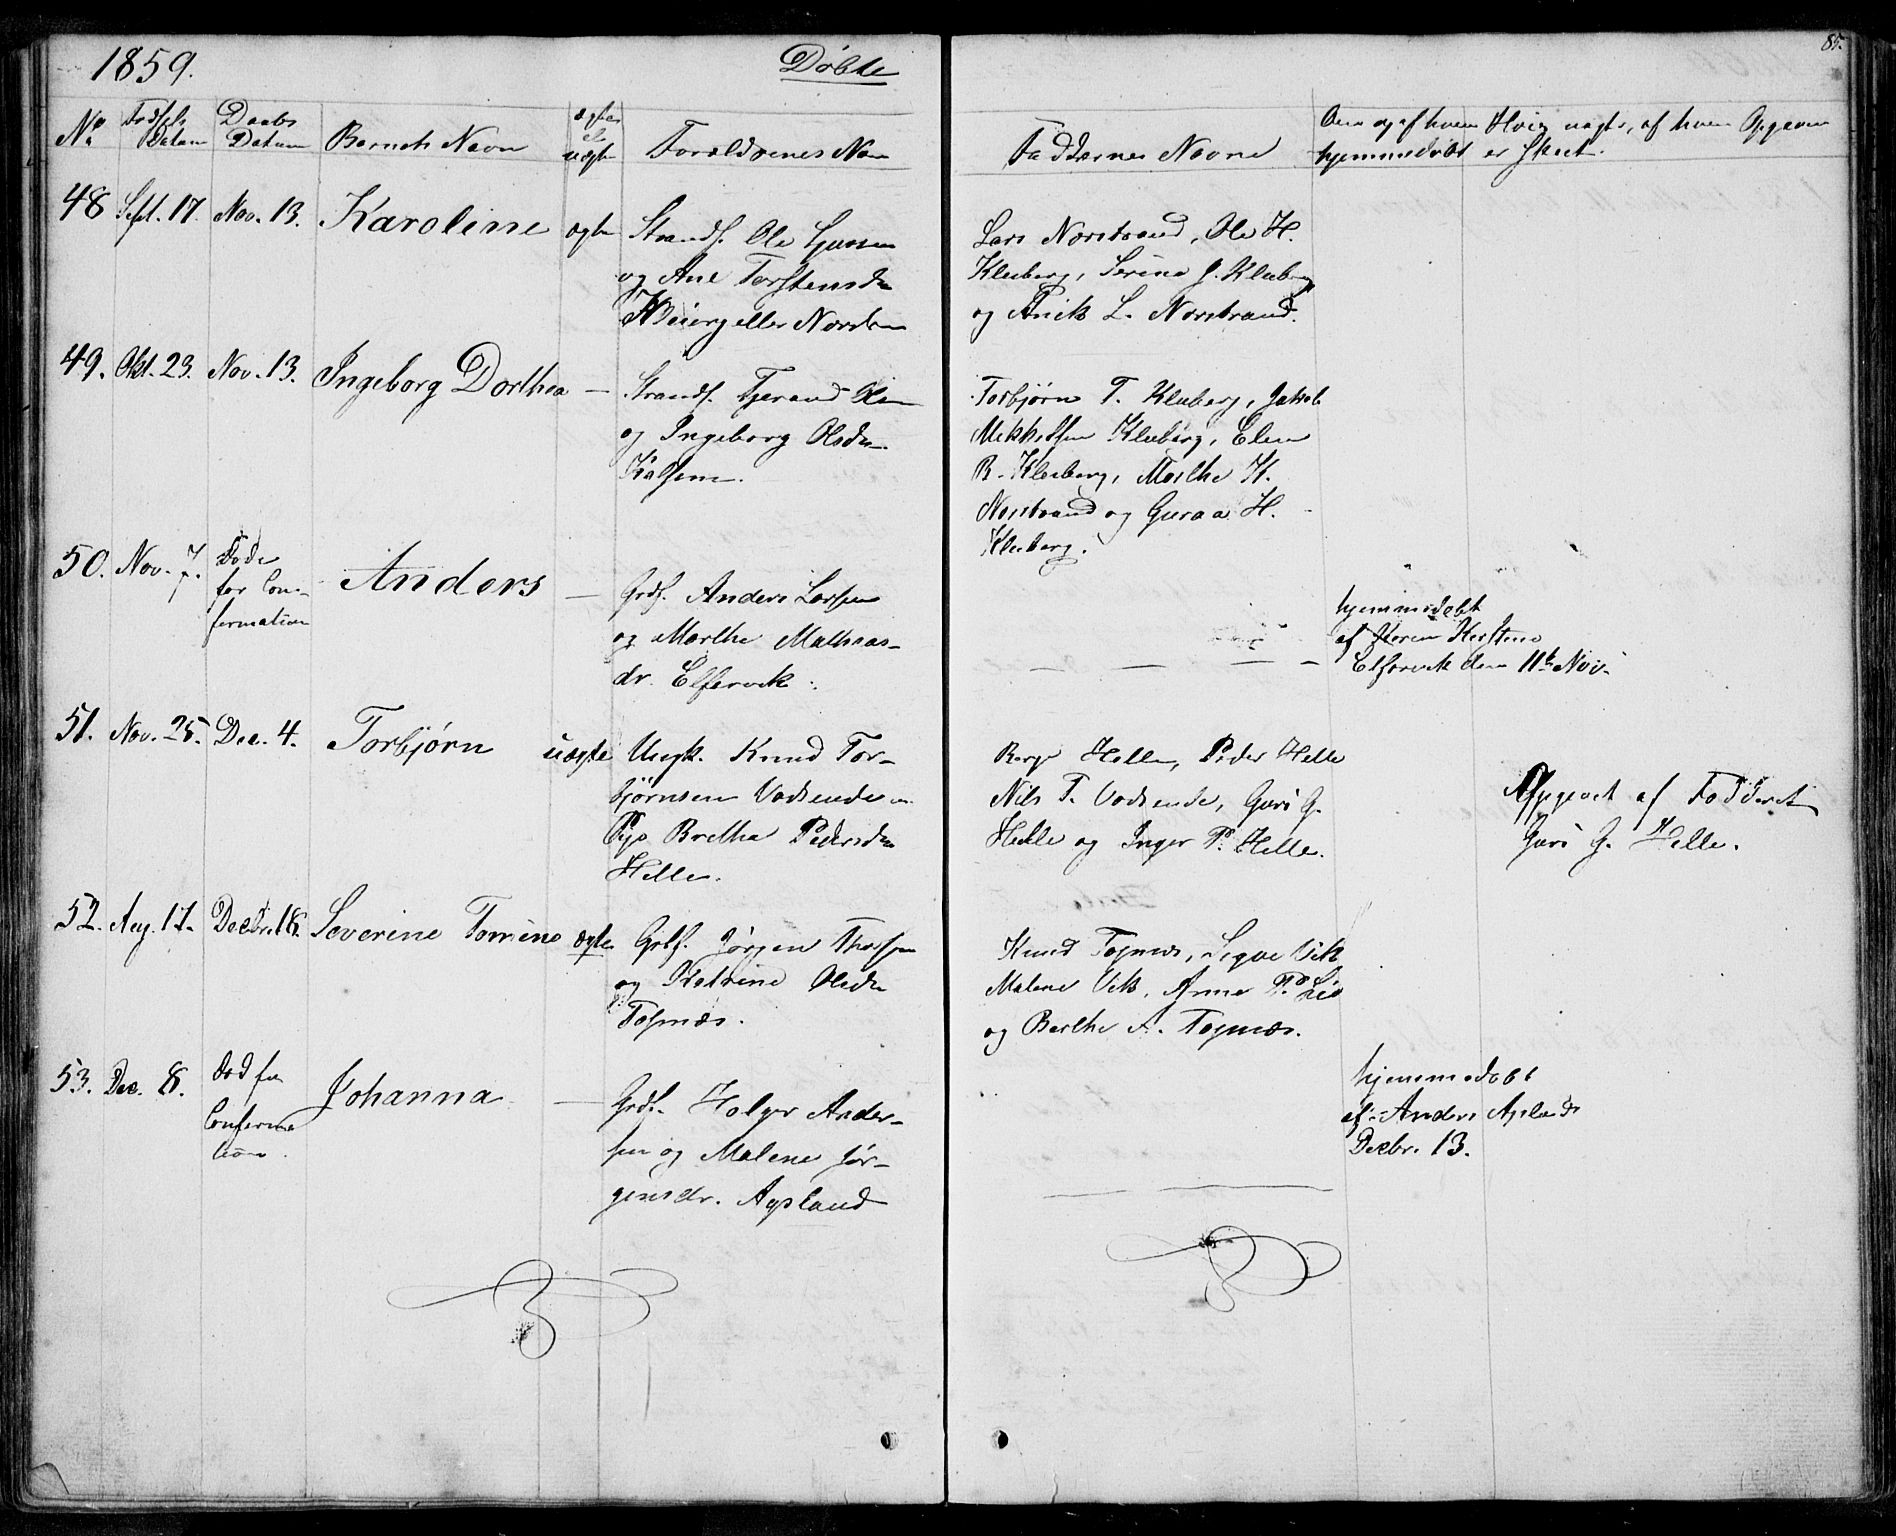 1859. Døbte
85.
No Fødsels Datum Daabs Datum Barnets Navn ægte el. uægte Forældrenes Navn Faddernes Navne Om og af hvem hjemmedøbt Hvis uægte, af hvem Opgaven er skeet.
48 Sept. 17. Nov. 13. Karoline ægte Strands. Ole
og Ane Torstensdr.
eller Norstrand
Lars Norstrand, Ole H.
Kleiberg, Serina J. Kleiberg
og L. Norstrand.
49. Okt. 23. Nov. 13. Ingeborg Dorthea — Strands. Tjerand Olsen
og Ingeborg Olsdr.
Torbjørn T. Kleiberg, Jakob
Mikkelsen Kleiberg, Elen
R. Kleiberg, Marthe K.
Norstrand og Guraa H.
Kleiberg.
50. Nov. 7. Døde
før Con-
firmation
Anders — Grdf. Anders Larsen
og Marthe Mathias-
dr. Elfervik.
— — — —
hjemmedøbt
af Karen Kirstine
Elfervik den 11te Nov.
51. Nov. 25. Dec. 4. Torbjørn uægte Ungk. Knud Tor-
bjørnsen Vadsende og
Pige Bretha Pedersdr.
Helle.
Børge Helle, Peder Helle
Nils T. Vadsende, Guri G.
Helle og Inger P. Helle.
Opgivet af Fadderet
Guri G. Helle.
52. Aug. 17. Decbr. 18. Severine Tomine ægte Grdf. Jørgen
og Katrine Olsdr.
Tognæs.
Knud Tognæs, Sigve Vik
Malene Vik, Anna P. Lie
og Berthe A. Tognæs.
53. Dec. 8. Død før
Confirma
tion.
Johanna — Grdf. Holger Ander-
sen og Malene Jør-
gensdr. Apeland
hjemmedøbt
af Anders Apeland
Decbr. 13.